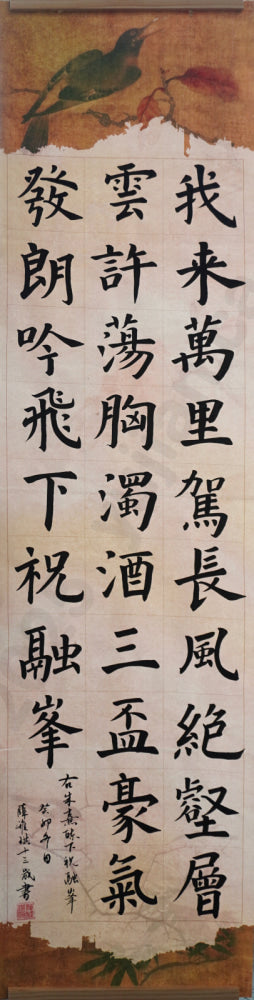 我来萬里駕長風絕壑層
雲許蕩胸濁酒三盃豪氣
發朗吟飛下祝融峯
右朱熹醉下祝融峯
癸卯年日
薛雅 十三歲書